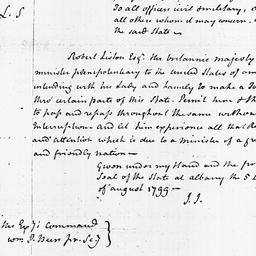 L. S
To all officers civil & military, a
all others whom it may concern.
the said State –
Robert Liston Esqr. his britannic majesty
minister plenipotentiary to the United States of am
intending with his Lady and family to make a To
thro' certain parts of this State. Permit him & th
to pass and repass throughout the same withou
Interruption – And let him experience all that Re
and attention which is due to a minister of a gr
and friendly nation –
Given under my Hand and the pr
Seal of the State at albany the 5
of august 1799 –
J. J.
his Exy's command
Wm. P. Beers pr. Secy